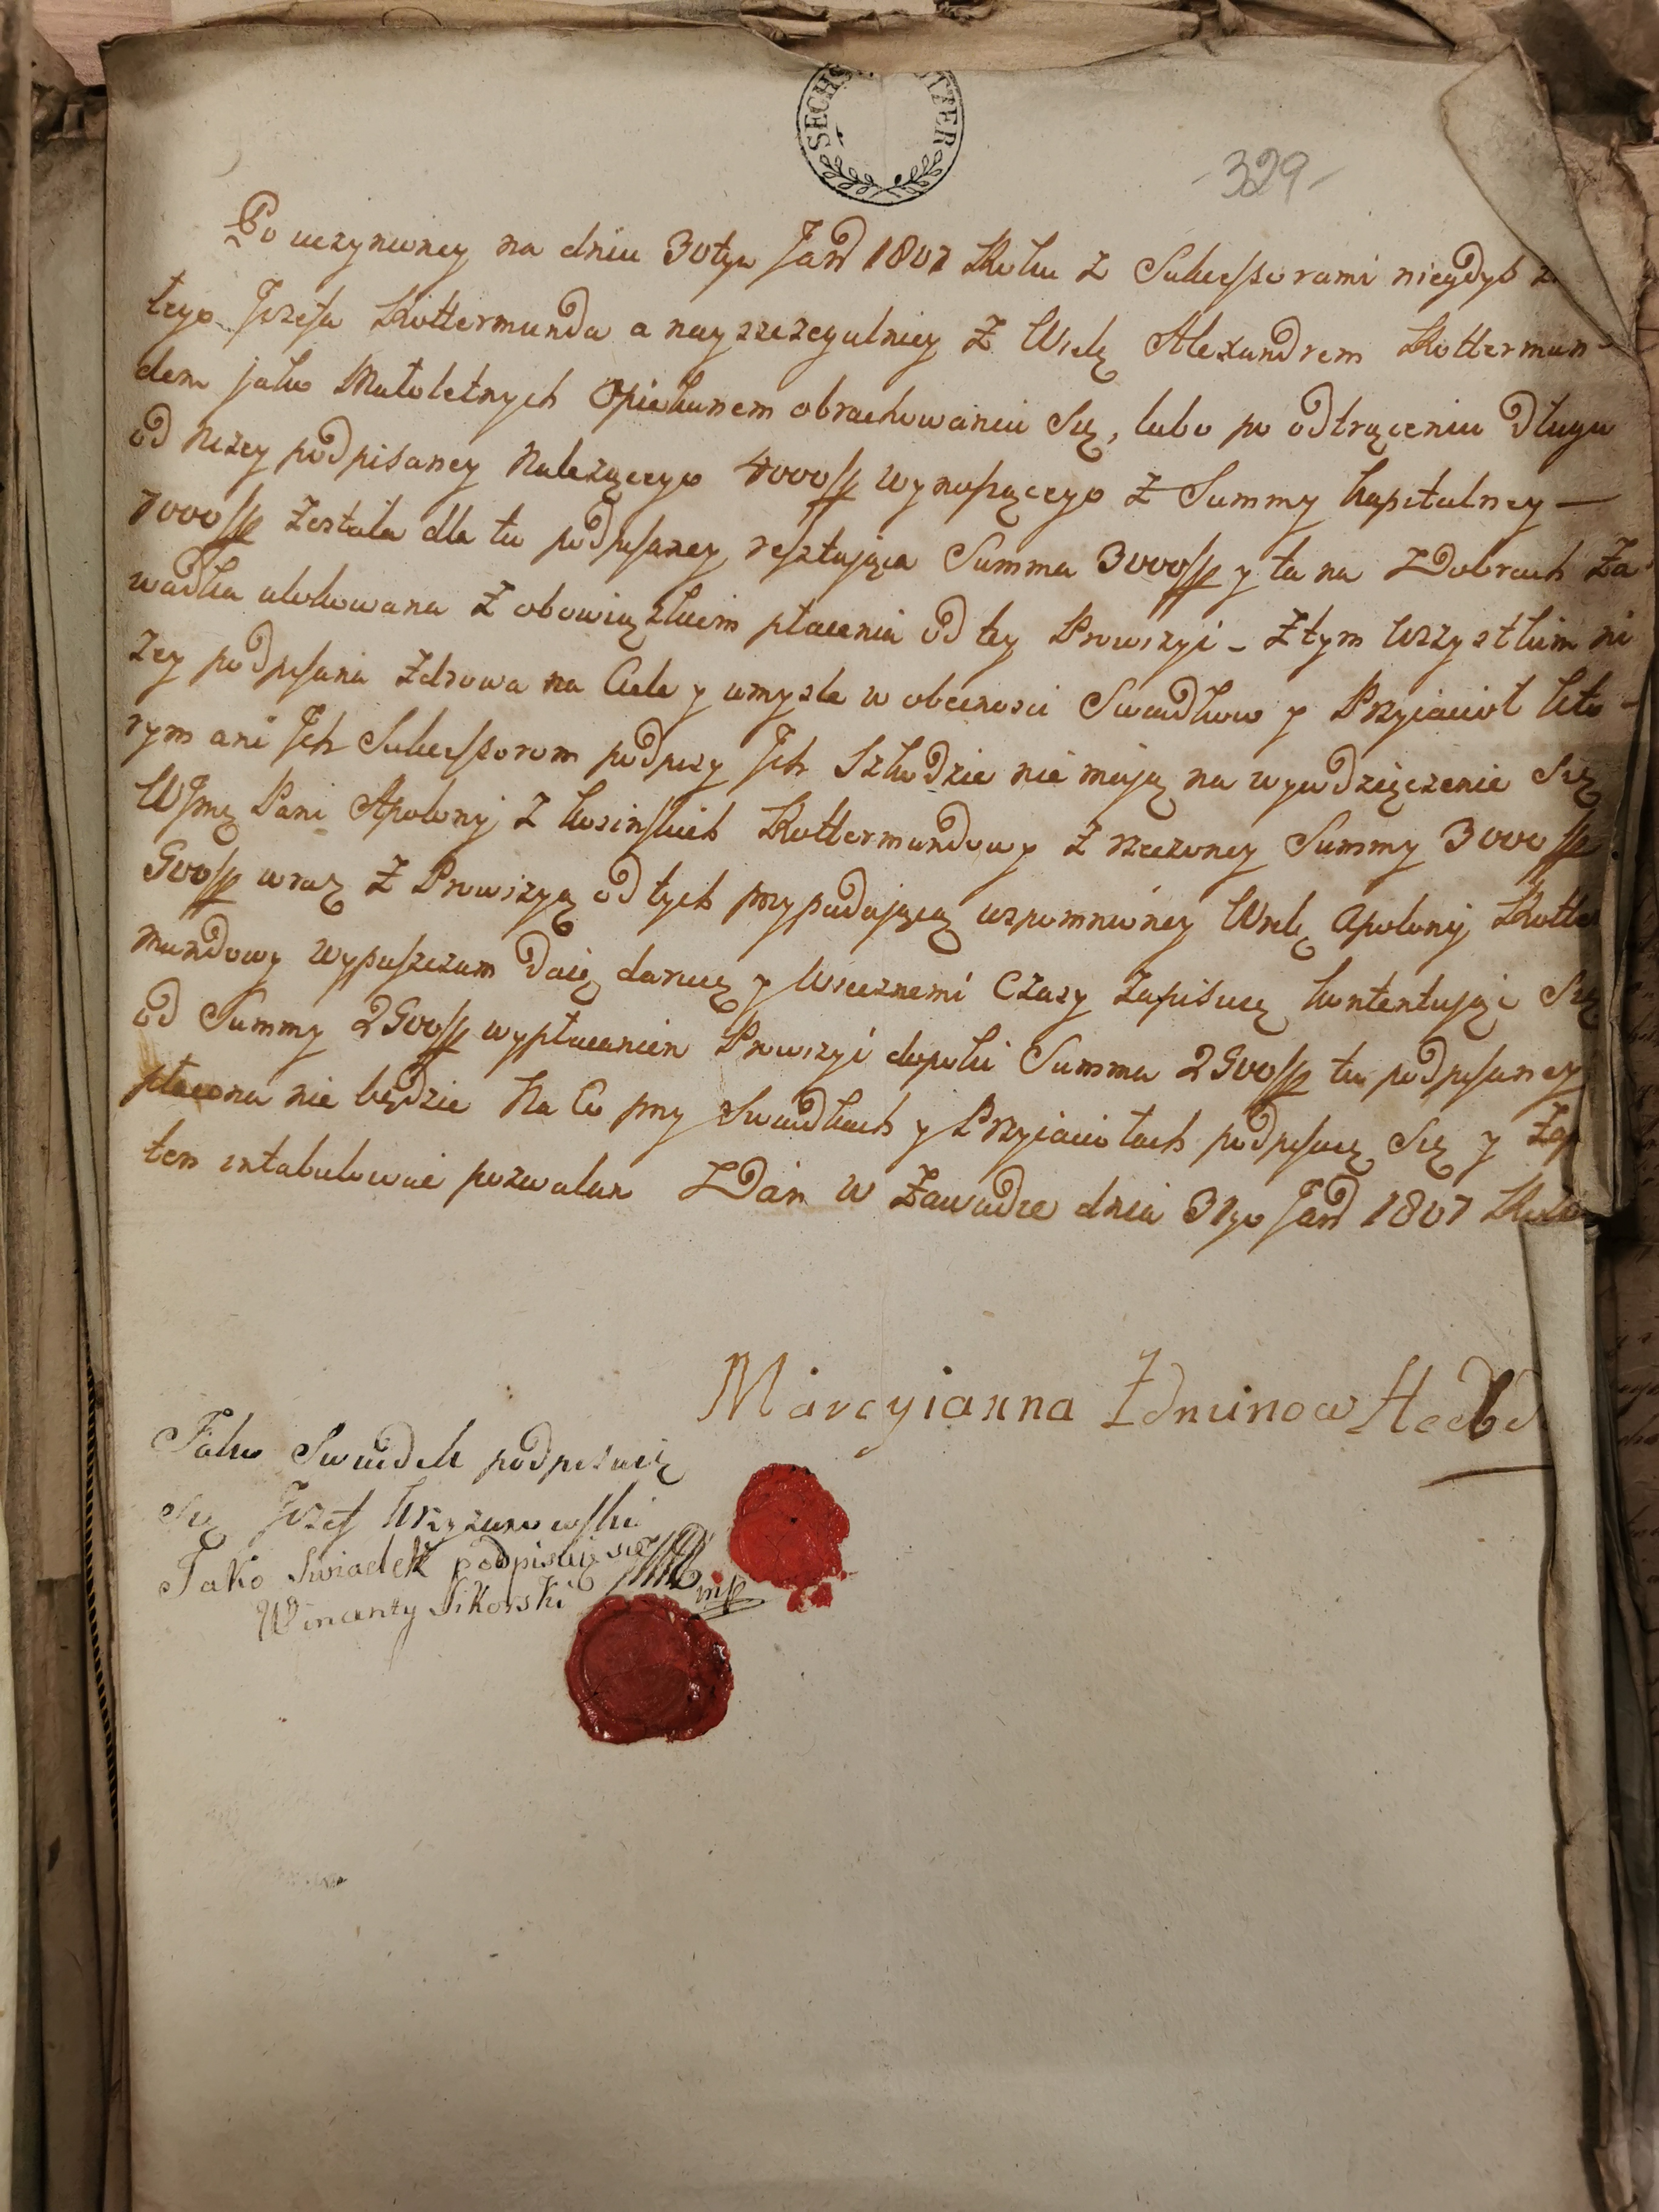 SECHS
-329-
Po uczynioney na dniu 30tym Jan 1807 Roku z Sukcessorami niegdyś
tego Jozefa Rottermunda a nayszczegulniey z Wielę Alexandrem Rottermun-
dem jako Małoletnych Opiekunem obrachowaniu Się, lubo po odtrąceniu Długu
od niżey podpisaney Należącego 4000 wynoszącego z Summy kapitalney —
7000 została dla tu podpisaney resztująca Summa 3000 y ta na Dobrach Za
wadka ulokowana z obowiązkiem płacenia od tey Prowizyi - z tym wszystkim ni
zey podpisana zdrowa na Ciele y umysle w obecnosci Swiadkow y Przyiacioł kto-
rym ani Jch Sukcessorom podpisy Jch Szkodzic nie mają na wywdzięczenie Się
WJmę Pani Apolonij z Kosinskich Rottermundowy z rzeczoney Summy 3000
500 wraz z Prowizyą od tych przypadającą wzpomnioney Wielę Apolonij Rotter
mundowy wypuszczam Daię daruię y Wiecznemi Czasy Zapisuię kontentując Się
od Summy 2500 wypłaceniem Prowizyi dopoki Summa 2500 tu podpisaney
płacona nie będzie Na Co przy Swiadkach y Przyiaciołach podpisuię Się y Zap
ten intabulować pozwalam Dan w Zawadce dnia 31go Jan 1807 Roku
Marcyianna
Jako Swiadek podpisuię
Się Jozef Krzyzanowski
Jako Swiadek podpisuię się
Wincenty Sikorski mp